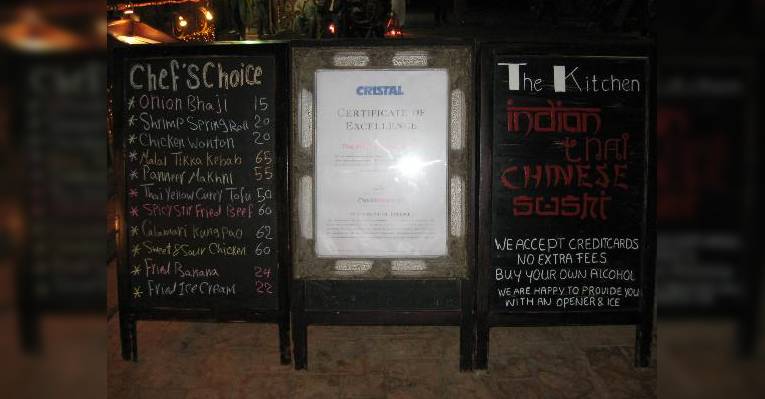 Chef's Choice
* Onion Bhaji 15
* Shrimp Spring Roll 20
* Chicken Wonton 20
* Malai Tikka Kebab 65
* Panneer Makhni 55
* Thai Yellow Curry Tofu 50
* Spicy Stir Fried Beef 60
* Calamari Kung Pao 62
* Sweet & Sour Chicken 60
* Fried Banana 24
* Fried Ice Cream 22
CRISTAL
CERTIFICATE OF
EXCELLENCE
The Kitchen
indian
thai
CHINESE
sushi
WE ACCEPT CREDITCARDS
NO EXTRA FEES
BUY YOUR OWN ALCOHOL
WE ARE HAPPY TO PROVIDE YOU
WITH AN OPENER & ICE